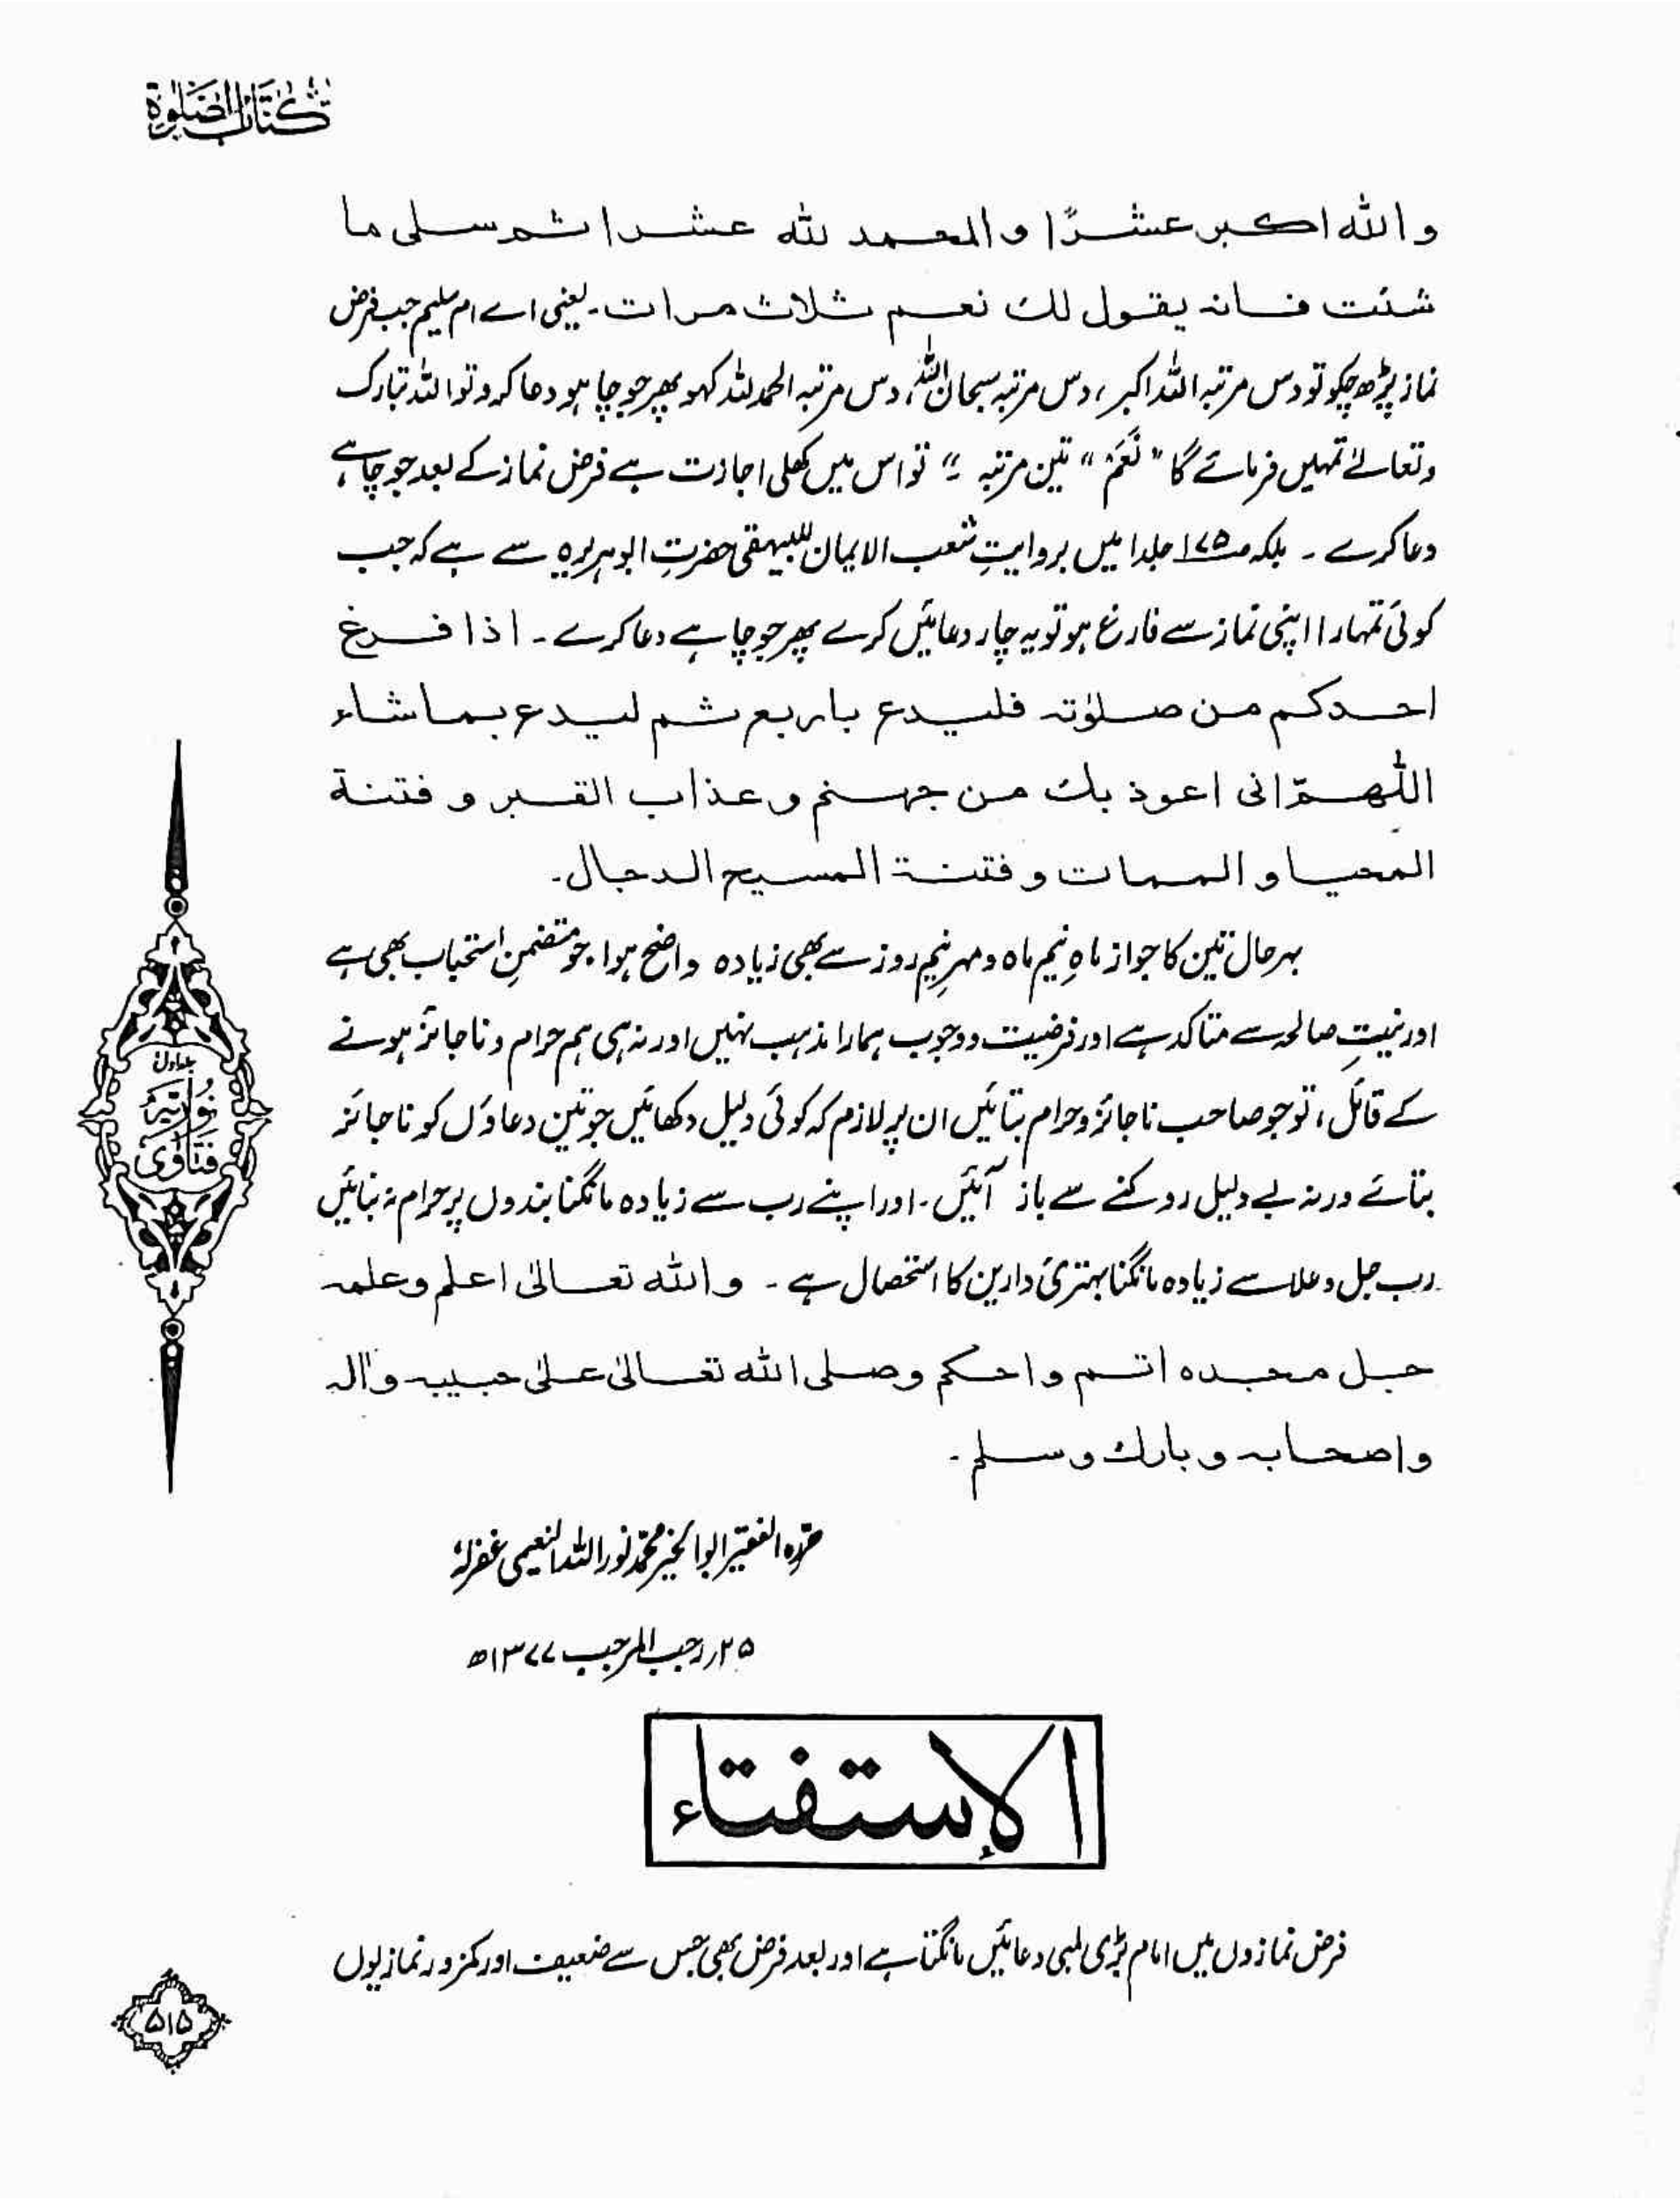 كتاب الصلوٰة
والله اكبر عشرًا والحمد لله عشرا ثم سلى ما
شئت فانه يقول لك نعم ثلاث مرات۔ یعنی اے ام سلیم جب فرض
نماز پڑھ چکو تو دس مرتبہ اللہ اکبر، دس مرتبہ سبحان اللہ، دس مرتبہ الحمد للہ کہو پھر جو چاہو دعا کرو تو اللہ تبارک
وتعالےٰ تمہیں فرمائے گا “نَعَمْ” تین مرتبہ ۔“ تو اس میں کھلی اجازت ہے فرض نماز کے بعد جو چاہے
دعا کرے ۔ بلکہ صـ۱۷۵ جلد۱ میں بروایتِ شعب الایمان للبیہقی حضرتِ ابوہریرہ سے ہے کہ جب
کوئی تمہارا اپنی نماز سے فارغ ہو تو یہ چار دعائیں کرے پھر جو چاہے دعا کرے ۔ اذا فرغ
احدكم من صلوٰته فليدع باربع ثم ليدع بما شاء
اللّٰهمّ انى اعوذ بك من جهنم وعذاب القبر و فتنة
المحيا و الممات و فتنة المسيح الدجال۔
بہرحال تین کا جواز ماہِ نیم ماہ و مہرِ نیم روز سے بھی زیادہ واضح ہوا جو متضمنِ استحباب بھی ہے
اور نیتِ صالحہ سے متاکد ہے اور فرضیت و وجوب ہمارا مذہب نہیں اور نہ ہی ہم حرام و ناجائز ہونے
کے قائل، تو جو صاحب ناجائز و حرام بتائیں ان پر لازم کہ کوئی دلیل دکھائیں جو تین دعاؤں کو ناجائز
بتائے ورنہ بے دلیل روکنے سے باز آئیں۔ اور اپنے رب سے زیادہ مانگنا بندوں پر حرام نہ بنائیں
رب جل وعلا سے زیادہ مانگنا بہتریٔ دارین کا استحصال ہے ۔ والله تعالىٰ اعلم وعلمه
جل مجده اتم واحكم وصلى الله تعالىٰ علىٰ حبيبه واٰله
واصحابه وبارك وسلم۔
حرّرہ الفقیر ابوالخیر محمد نور اللہ النعیمی غفرلہٗ
۲۵؍ رجب المرجب ۱۳۷۷ھ
الإستفتاء
فرض نمازوں میں امام بڑی لمبی دعائیں مانگتا ہے اور بعد فرض بھی جس سے ضعیف اور کمزور نمازیوں
جلد اول
نوریہ
فتاوٰی
۵۱۵